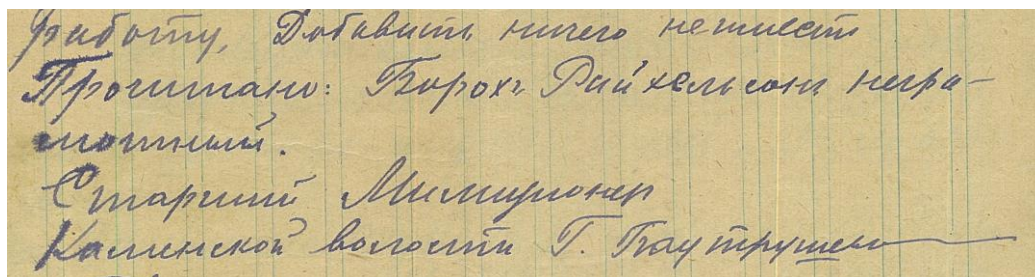 работу, Добавить ничего не
Прочитано: Борохъ Райхельсонъ негра-
мотный.
Старший Милиционер
Каменской волости Г.